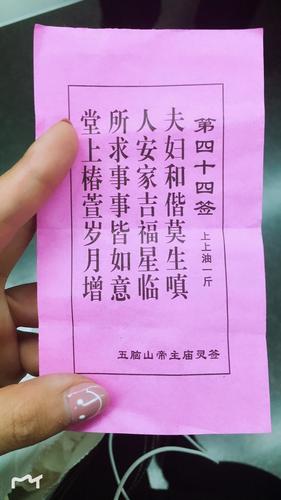 第四十四签 上上油一斤
夫妇和偕莫生嗔
人安家吉福星临
所求事事皆如意
堂上椿萱岁月增
五脑山帝主庙灵签